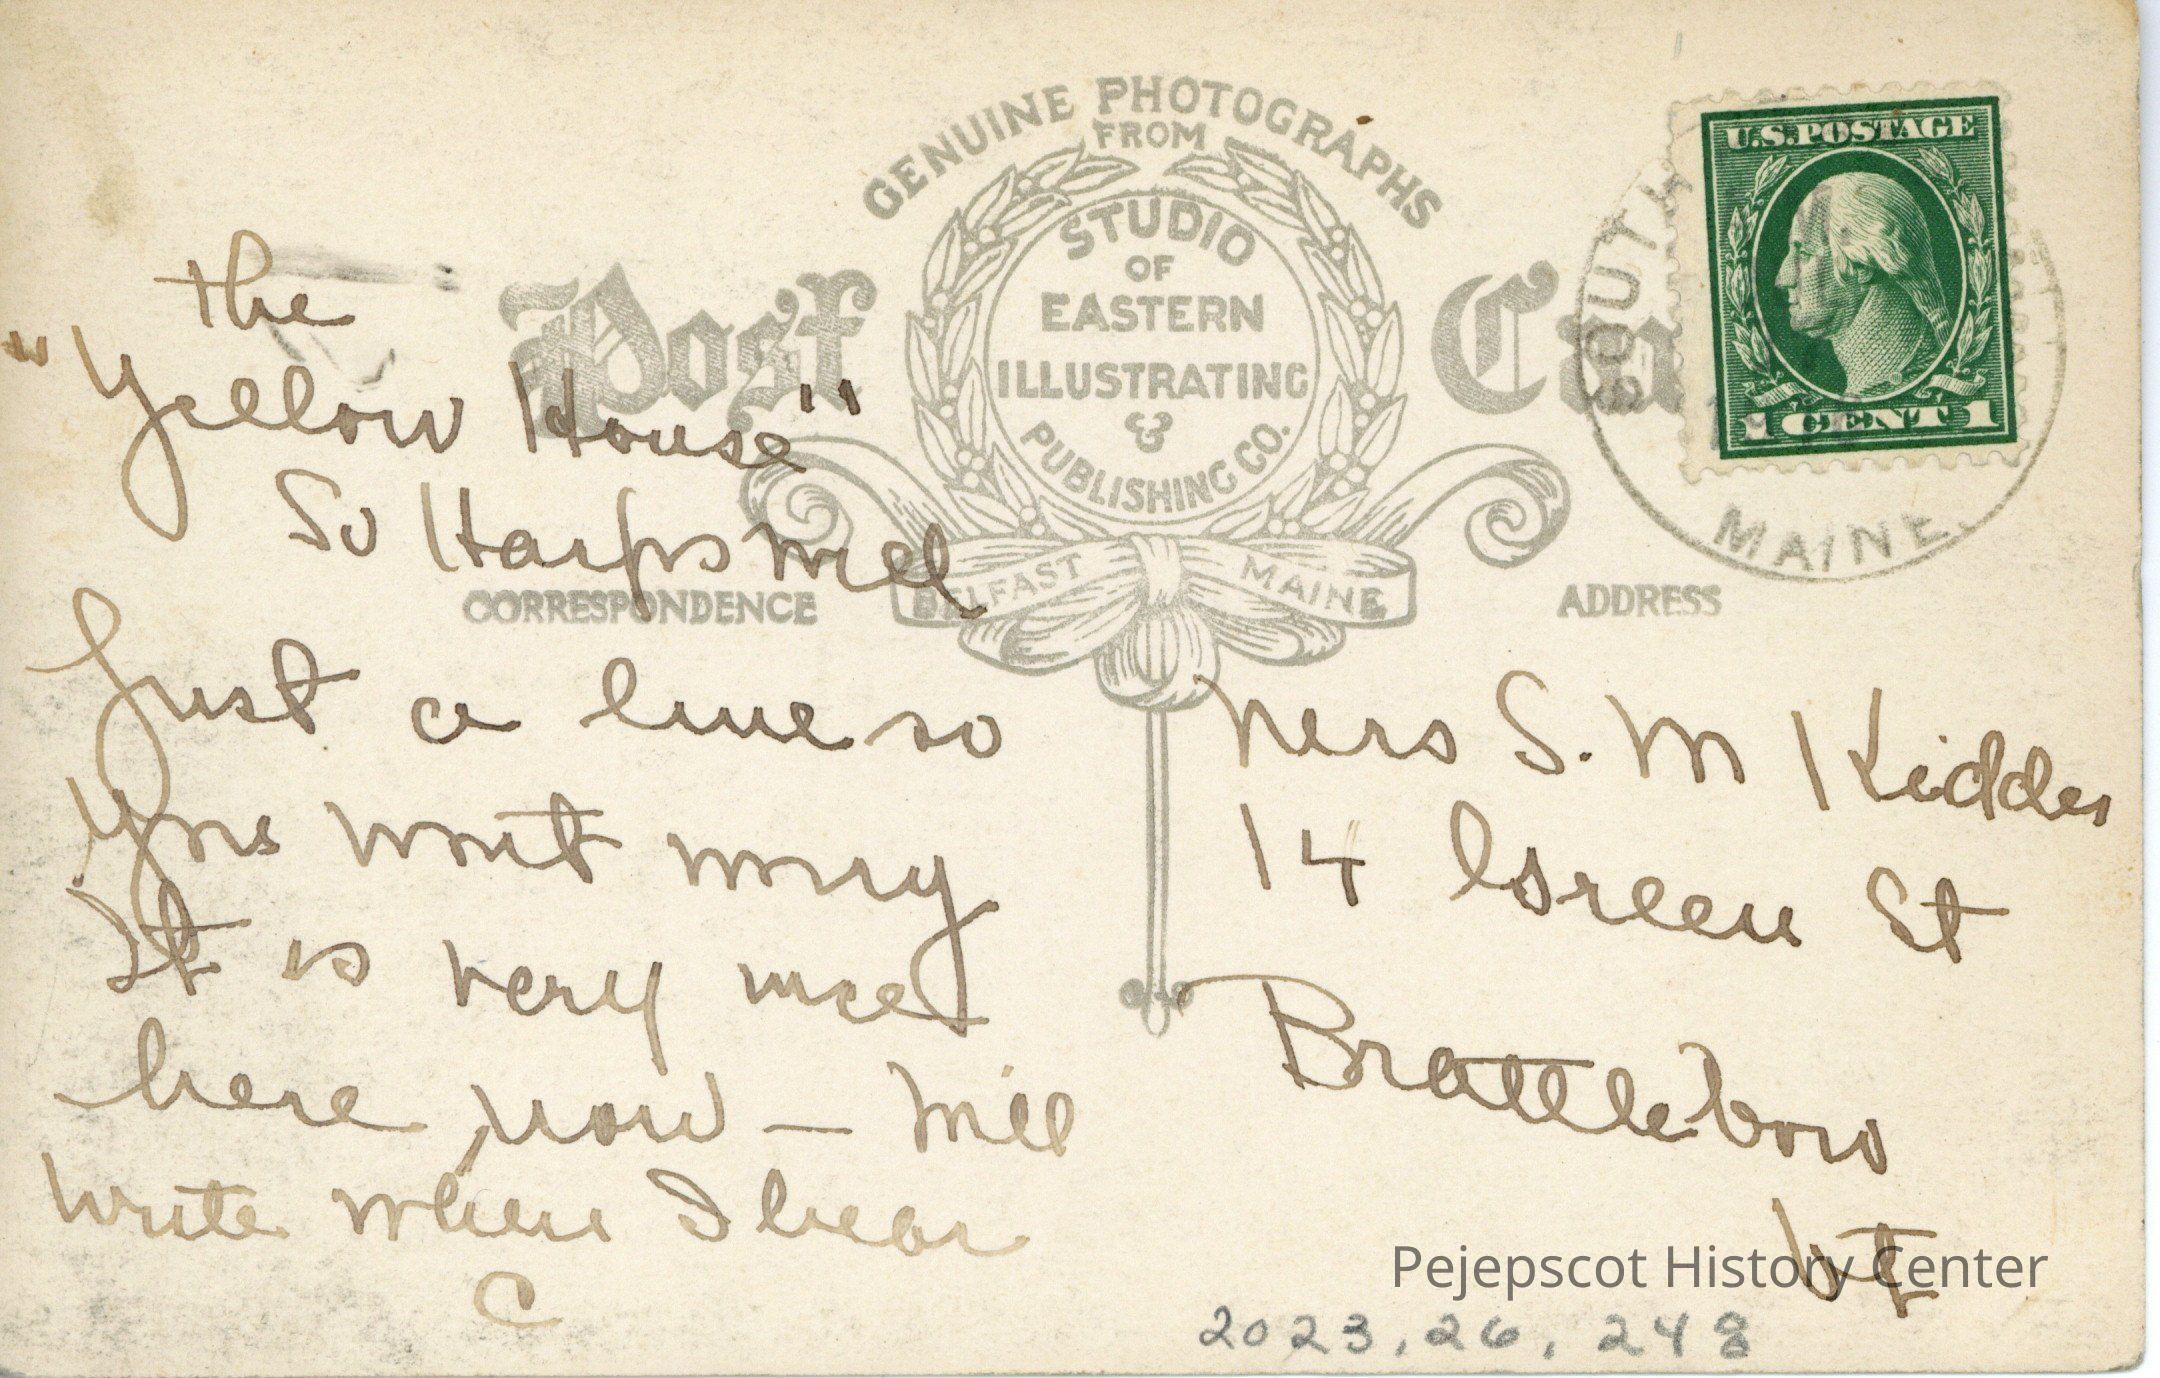 GENUINE PHOTOGRAPHS
FROM
STUDIO
OF
EASTERN
ILLUSTRATING
&
PUBLISHING CO.
BELFAST MAINE
Post Ca
CORRESPONDENCE
ADDRESS
U.S. POSTAGE
1 CENT 1
SOUTH
MAINE.
the
"Yellow House"
So Harpswell
Just a line so
You wont worry
It is very nice
here now — Will
write when I hear
C
Mrs S. M Kidder
14 Green St
Brattleboro
Vt
Pejepscot History Center
2023.26.248